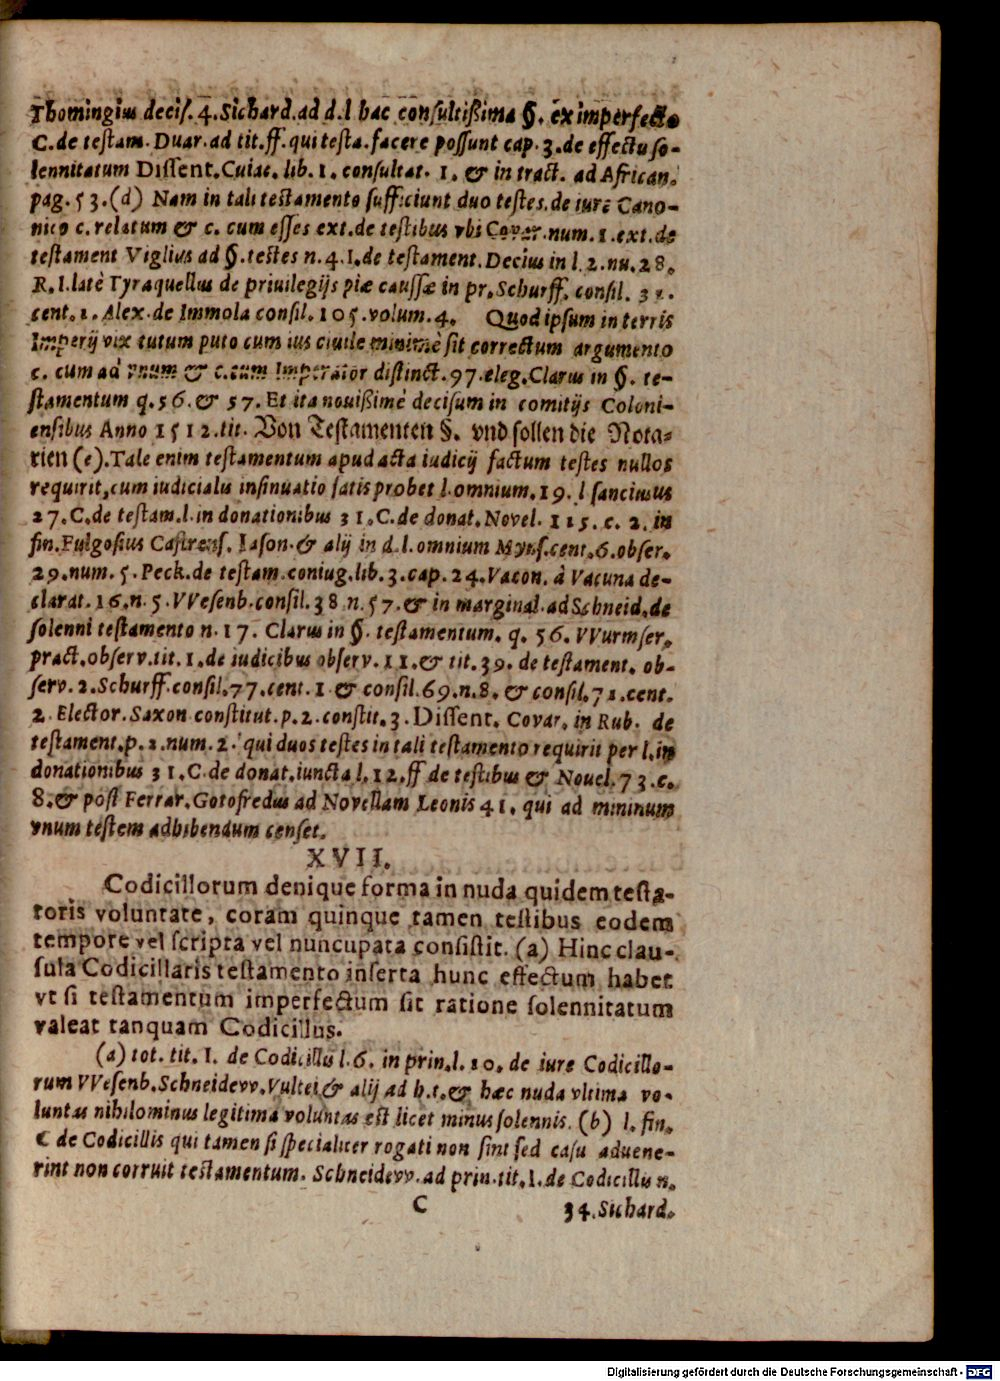 Thomingius decis. 4. Sichard. ad d. l hac consultißima §. ex imperfecto
C. de testam. Duar. ad tit. ff. qui testa. facere possunt cap. 3. de effectu so-
lennitatum Dissent. Cuiac. lib. 1. consultat. 1. & in tract. ad African.
pag. 53. (d) Nam in tali testamento sufficiunt duo testes. de iure Cano-
nico c. relatum & c. cum esses ext. de testibus vbi Covar. num. 1. ext. de
testament Viglius ad §. testes n. 4. I. de testament. Decius in l. 2. nu. 28.
R. I. latè Tyraquellus de priuilegijs piæ caussæ in pr. Schurff. consil. 31.
cent. 1. Alex. de Immola consil. 105. volum. 4. Quod ipsum in terris
Imperij vix tutum puto cum ius ciuile minimè sit correctum argumento
c. cum ad vnum & c. cum Imperator distinct. 97. eleg. Clarus in §. te-
stamentum q. 56. & 57. Et ita nouißimè decisum in comitijs Coloni-
ensibus Anno 1512. tit. Von Testamenten §. vnd sollen die Nota-
rien (e). Tale enim testamentum apud acta iudicij factum testes nullos
requirit, cum iudicialis insinuatio satis probet l. omnium. 19. l sancimus
27. C. de testam. l. in donationibus 31. C. de donat. Novel. 115. c. 2. in
fin. Fulgosius Castrens. Iason. & alij in d. l. omnium Myns. cent. 6. obser.
29. num. 5. Peck. de testam. coniug. lib. 3. cap. 24. Vacon. à Vacuna de-
clarat. 16. n. 5. VVesenb. consil. 38 n. 57. & in marginal. ad Schneid. de
solenni testamento n. 17. Clarus in §. testamentum. q. 56. VVurmser.
pract. observ. tit. 1. de iudicibus observ. 11. & tit. 39. de testament. ob-
serv. 2. Schurff. consil. 77. cent. 1 & consil. 69. n. 8. & consil. 71. cent.
2 Elector. Saxon constitut. p. 2. constit. 3. Dissent. Covar. in Rub. de
testament. p. 2. num. 2. qui duos testes in tali testamento requirit per l. in
donationibus 31. C. de donat. iuncta l. 12. ff de testibus & Nouel. 73. c.
8. & post Ferrar. Gotofredus ad Novellam Leonis 41. qui ad mininum
vnum testem adhibendum censet.
XVII.
Codicillorum denique forma in nuda quidem testa-
toris voluntate, coram quinque tamen testibus eodem
tempore vel scripta vel nuncupata consistit. (a) Hinc clau-
sula Codicillaris testamento inserta hunc effectum habet
vt si testamentum imperfectum sit ratione solennitatum
valeat tanquam Codicillus.
(a) tot. tit. I. de Codicillis l. 6. in prin. l. 10. de iure Codicillo-
rum VVesenb. Schneidevv. Vultei & alij ad h. t. & hæc nuda vltima vo-
luntas nihilominus legitima voluntas est licet minus solennis. (b) l. fin.
C de Codicillis qui tamen si specialiter rogati non sint sed casu aduene-
rint non corruit testamentum. Schneidevv. ad prin. tit. I. de Codicillis n.
C 34. Sichard.
Digitalisierung gefördert durch die Deutsche Forschungsgemeinschaft - DFG